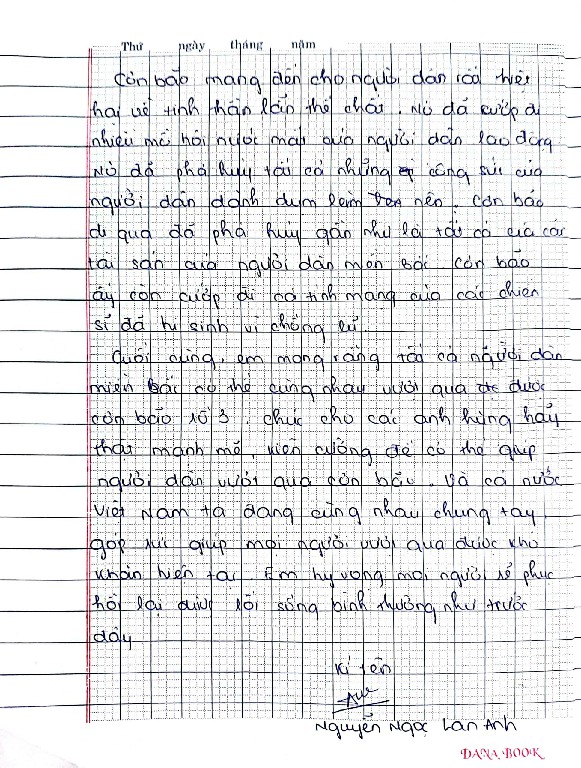 Thứ ngày tháng năm
Cơn bão mang đến cho người dân rất thiệt
hại về tinh thần lẫn thể chất. Nó đã cướp đi
nhiều mồ hôi nước mắt của người dân lao động
Nó đã phá hủy tất cả những công sức của
người dân dành dụm làm nên. Cơn bão
đi qua đã phá hủy gần như là tất cả của các
tài sản của người dân miền Bắc. Cơn bão
ấy còn cướp đi cả tính mạng của các chiến
sĩ đã hi sinh vì chống lũ.
Cuối cùng, em mong rằng tất cả người dân
miền Bắc có thể cùng nhau vượt qua được
cơn bão số 3. Chúc cho các anh hùng hãy
thật mạnh mẽ, kiên cường để có thể giúp
người dân vượt qua cơn bão. Và cả nước
Việt Nam ta đang cùng nhau chung tay,
góp sức giúp mọi người vượt qua được khó
khăn hiện tại. Em hy vọng mọi người sẽ phục
hồi lại được lối sống bình thường như trước
đây
Kí tên
Nguyễn Ngọc Lan Anh
DANA BOOK